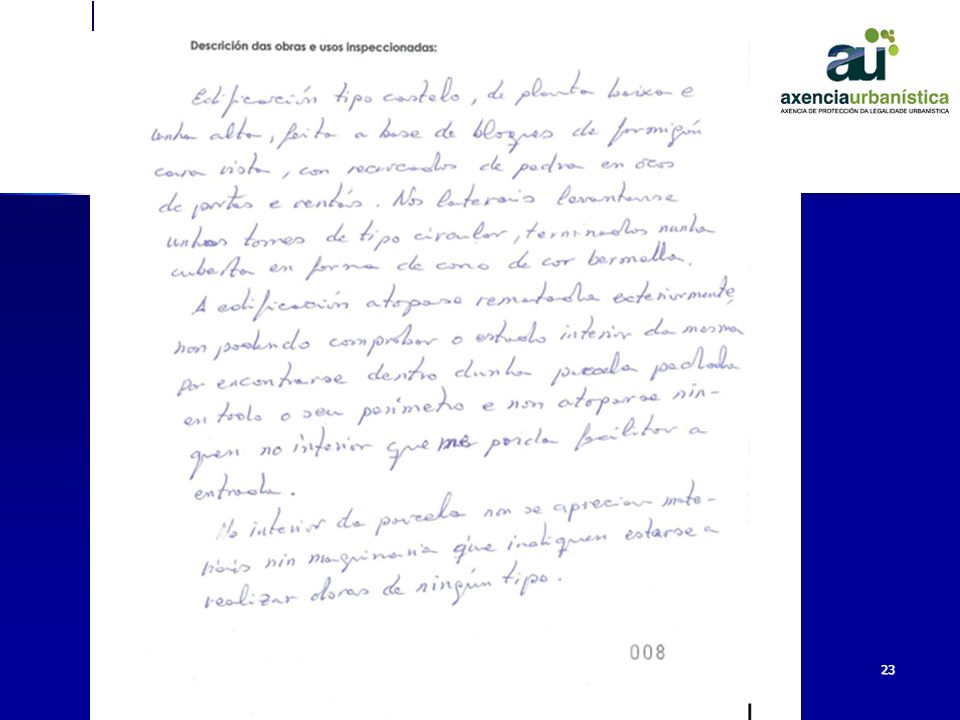 Descrición das obras e usos inspeccionadas:
Edificación tipo castelo, de planta baixa e
unha alta, feita a base de bloques de formigón
cara vista, con recercados de pedra en ocos
de portas e ventás. Nos laterais levantanse
unhas torres de tipo circular, terminados nunha
cuberta en forma de cono de cor bermella.
A edificación atopase rematada exteriormente,
non podendo comprobar o estado interior da mesma
por encontrarse dentro dunha parcela pechada
en todo o seu perímetro e non atoparse nin-
guen no interior que me poida facilitar a
entrada.
No interior da parcela non se aprecian mate-
riais nin maquinaria que indiquen estarse a
realizar obras de ningún tipo.
008
au
axenciaurbanística
AXENCIA DE PROTECCIÓN DA LEGALIDADE URBANÍSTICA
23